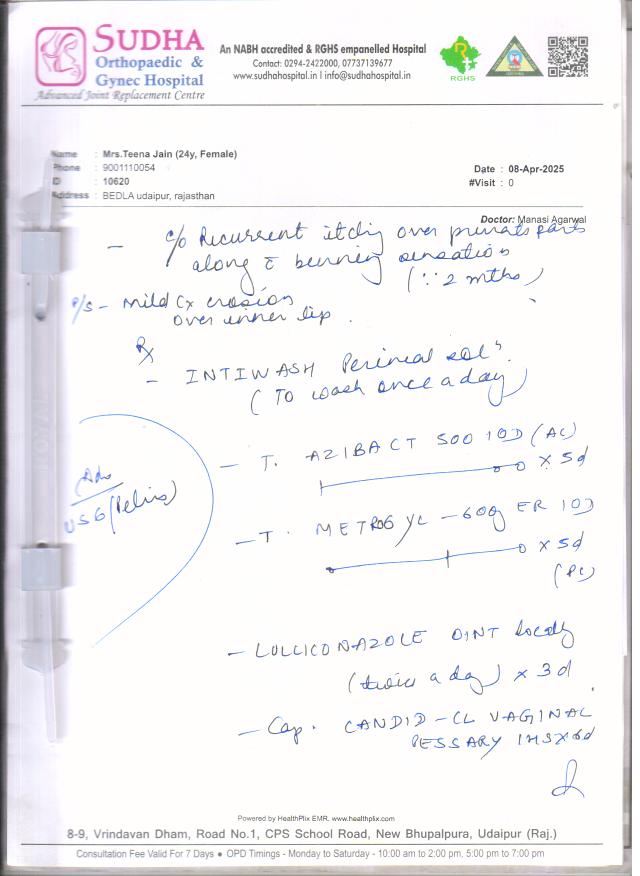 SUDHA
Orthopaedic &
Gynec Hospital
Advanced Joint Replacement Centre
An NABH accredited & RGHS empanelled Hospital
Contact: 0294-2422000, 07737139677
www.sudhahospital.in I info@sudhahospital.in
RGHS
Name : Mrs.Teena Jain (24y, Female)
Phone : 9001110054
ID : 10620
Address : BEDLA udaipur, rajasthan
Date : 08-Apr-2025
#Visit : 0
Doctor: Manasi Agarwal
- c/o Recurrent itchy over private parts
along c̄ burning sensation
(∵ 2 mths)
P/S - Mild Cx erosion
over inner lip.
Rx
- INTIWASH Perineal solⁿ.
(To wash once a day)
- T. AZIBACT 500 1OD (AC)
x 5d
Adv
USG (Pelvis)
- T. METROGYL - 600g ER 1OD
x 5d
(PC)
- LULLICONAZOLE OINT locally
(twice a day) x 3d
- Cap. CANDID-CL VAGINAL
PESSARY 1HSx6d
Powered by HealthPlix EMR. www.healthplix.com
8-9, Vrindavan Dham, Road No.1, CPS School Road, New Bhupalpura, Udaipur (Raj.)
Consultation Fee Valid For 7 Days ● OPD Timings - Monday to Saturday - 10:00 am to 2:00 pm, 5:00 pm to 7:00 pm